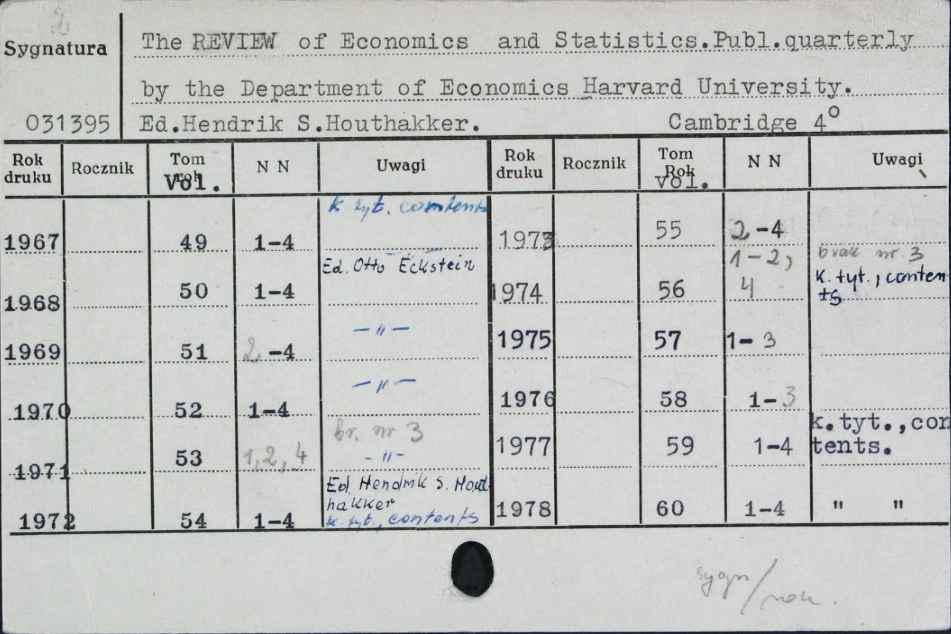 Sygnatura
The REVIEW of Economics and Statistics.Publ.quarterly
by the Department of Economics Harvard University.
031395 Ed.Hendrik S.Houthakker. Cambridge 4°
Rok druku Rocznik Tom rok Vol. N N Uwagi Rok druku Rocznik Tom Rok Vol. N N Uwagi
k tyt. contents
1967 49 1-4 1973 55 2-4
Ed. Otto Eckstein
1968 50 1-4 1974 56 1-2, 4 brak nr 3 k. tyt., contents
1969 51 2-4 -"- 1975 57 1-3
1970 52 1-4 -"- 1976 58 1-3
br. nr 3
1971 53 1,2,4 -"- 1977 59 1-4 k.tyt.,contents.
Ed. Hendrik S. Houthakker
1972 54 1-4 k. tyt., contents 1978 60 1-4 " "
sygn/